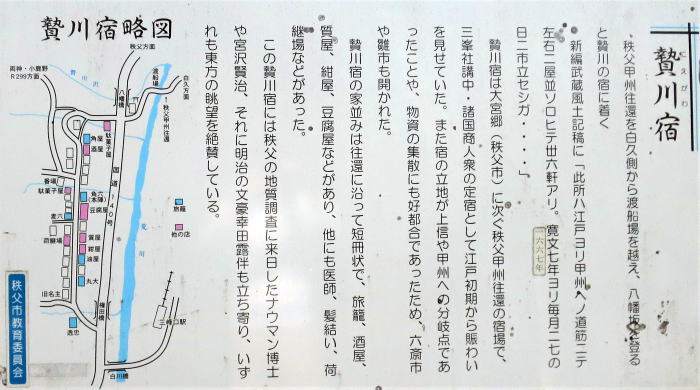 贄川宿
にえがわ
秩父甲州往還を白久側から渡船場を越え、八幡坂を登る
と贄川の宿に着く
新編武蔵風土記稿に「此所ハ江戸ヨリ甲州ヘノ道筋ニテ
左右二屋並ソロヒテ廿六軒アリ。寛文七年ヨリ毎月二七の
一六六七年
日二市立セシガ・・・・」
贄川宿は大宮郷(秩父市)に次ぐ秩父甲州往還の宿場で、
三峯社講中・諸国商人衆の定宿として江戸初期から賑わい
を見せていた。また宿の立地が上信や甲州への分岐点であ
ったことや、物資の集散にも好都合であったため、六斎市
や雛市も開かれた。
贄川宿の家並みは往還に沿って短冊状で、旅籠、酒屋、
質屋、紺屋、豆腐屋などがあり、他にも医師、髪結い、荷
継場などがあった。
この贄川宿には秩父の地質調査に来日したナウマン博士
や宮沢賢治、それに明治の文豪幸田露伴も立ち寄り、いず
れも東方の眺望を絶賛している。
贄川宿略図
秩父方面
両神・小鹿野
R299方面
贄川沢
八幡橋
渡船場
秩父甲州往還
白久方面
駄菓子屋
角屋
酒屋
国道140号
荒川
番場
駄菓子屋
麦六
荷継場
角六
(本陣)
豆腐屋
質屋
紺屋
油屋
丸大
旅籠
他の店
旧名主
逸忠
橋田橋
三峰口駅
白川橋
秩父市教育委員会